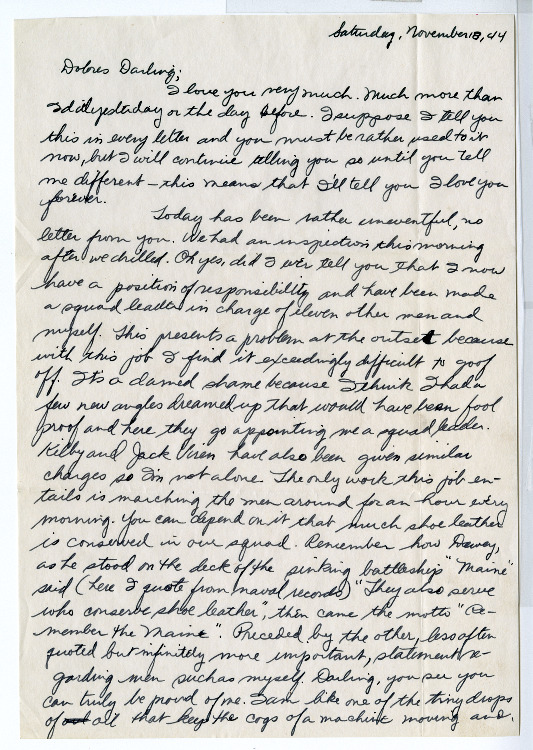 Saturday, November 18, 44
Dolores Darling;
I love you very much. Much more than
I did yesterday or the day before. I suppose I tell you
this in every letter and you must be rather used to it
now, but I will continue telling you so until you tell
me different - this means that I'll tell you I love you
forever.
Today has been rather uneventful, no
letter from you. We had an inspection this morning
after we drilled. Oh yes, did I ever tell you that I now
have a position of responsibility and have been made
a squad leader in charge of eleven other men and
myself. This presents a problem at the outset because
with this job I find it exceedingly difficult to goof
off. It's a damed shame because I think I had a
few new angles dreamed up that would have been fool
proof and here they go appointing me a squad leader.
Kilby and Jack Viren have also been given similar
charges so I'm not alone. The only work this job en-
tails is marching the men around for an hour every
morning. You can depend on it that much shoe leather
is conserved in our squad. Remember how Dewey,
as he stood on the deck of the sinking battleship "Maine"
said (here I quote from naval records) "They also serve
who conserve shoe leather", then came the motto "Re-
member the Maine". Preceded by the other, less often
quoted but infinitely more important, statement re-
garding men such as myself. Darling, you see you
can truly be proud of me. I am like one of the tiny drops
of oil that keep the cogs of a machine moving and.